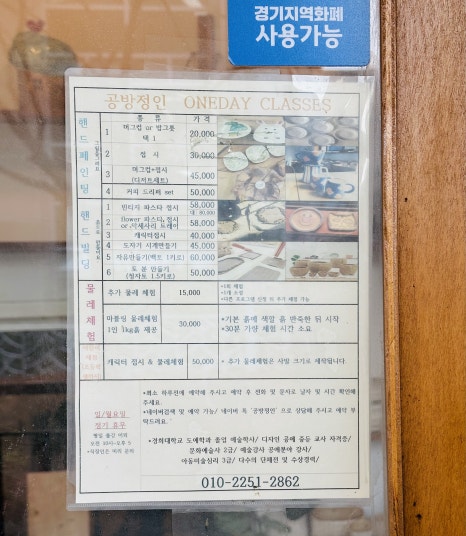 경기지역화폐
사용가능
공방정인 ONEDAY CLASSES
종 류 가 격
핸드페인팅
1 머그컵 or 밥그릇 택 1 20,000
2 접 시 30,000
3 머그컵+접시 (디저트세트) 45,000
4 커피 드리퍼 set 50,000
핸드빌딩
1 빈티지 파스타 접시 58,000
2 flower 파스타,접시 or 악세사리 트레이 58,000
3 캐릭터접시 40,000
4 도자기 시계만들기 45,000
5 자유만들기(백토 1키로) 60,000
6 토 분 만들기 (청자토 1.5키로) 50,000
물레체험
추가 물레 체험 15,000
마블링 물레체험 1인 1kg흙 제공 30,000
*기본 흙에 색깔 흙 반죽한 뒤 시작
*30분 가량 체험 시간 소요
캐릭터 접시 & 물레체험 50,000
* 추가 물레체험은 사발 크기로 제작됩니다.
*최소 하루전에 예약해 주시고 예약 후 전화 및 문자로 날짜 및 시간 확인해 주세요.
*네이버검색 및 예약 가능/ 네이버 톡 '공방정인' 으로 상담해 주시고 예약 부탁드려요.
일/월요일
정기 휴무
*경희대학교 도예학과 졸업 예술학사/ 디자인 공예 중등 교사 자격증/
문화예술사 2급/ 예술강사 공예분야 강사/
아동미술심리 3급/ 다수의 단체전 및 수상경력/
010-2251-2862